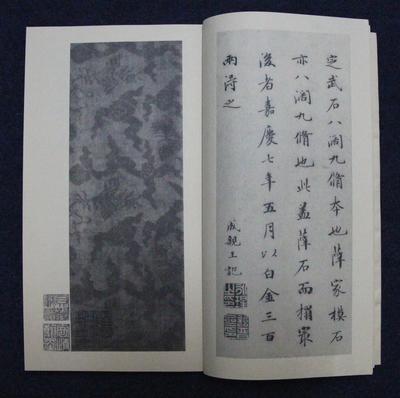 定武石八闊九脩本也薛家模石
亦八闊九脩也此蓋薛石而搨最
後者嘉慶七年五月以白金三百
兩得之
成親王記